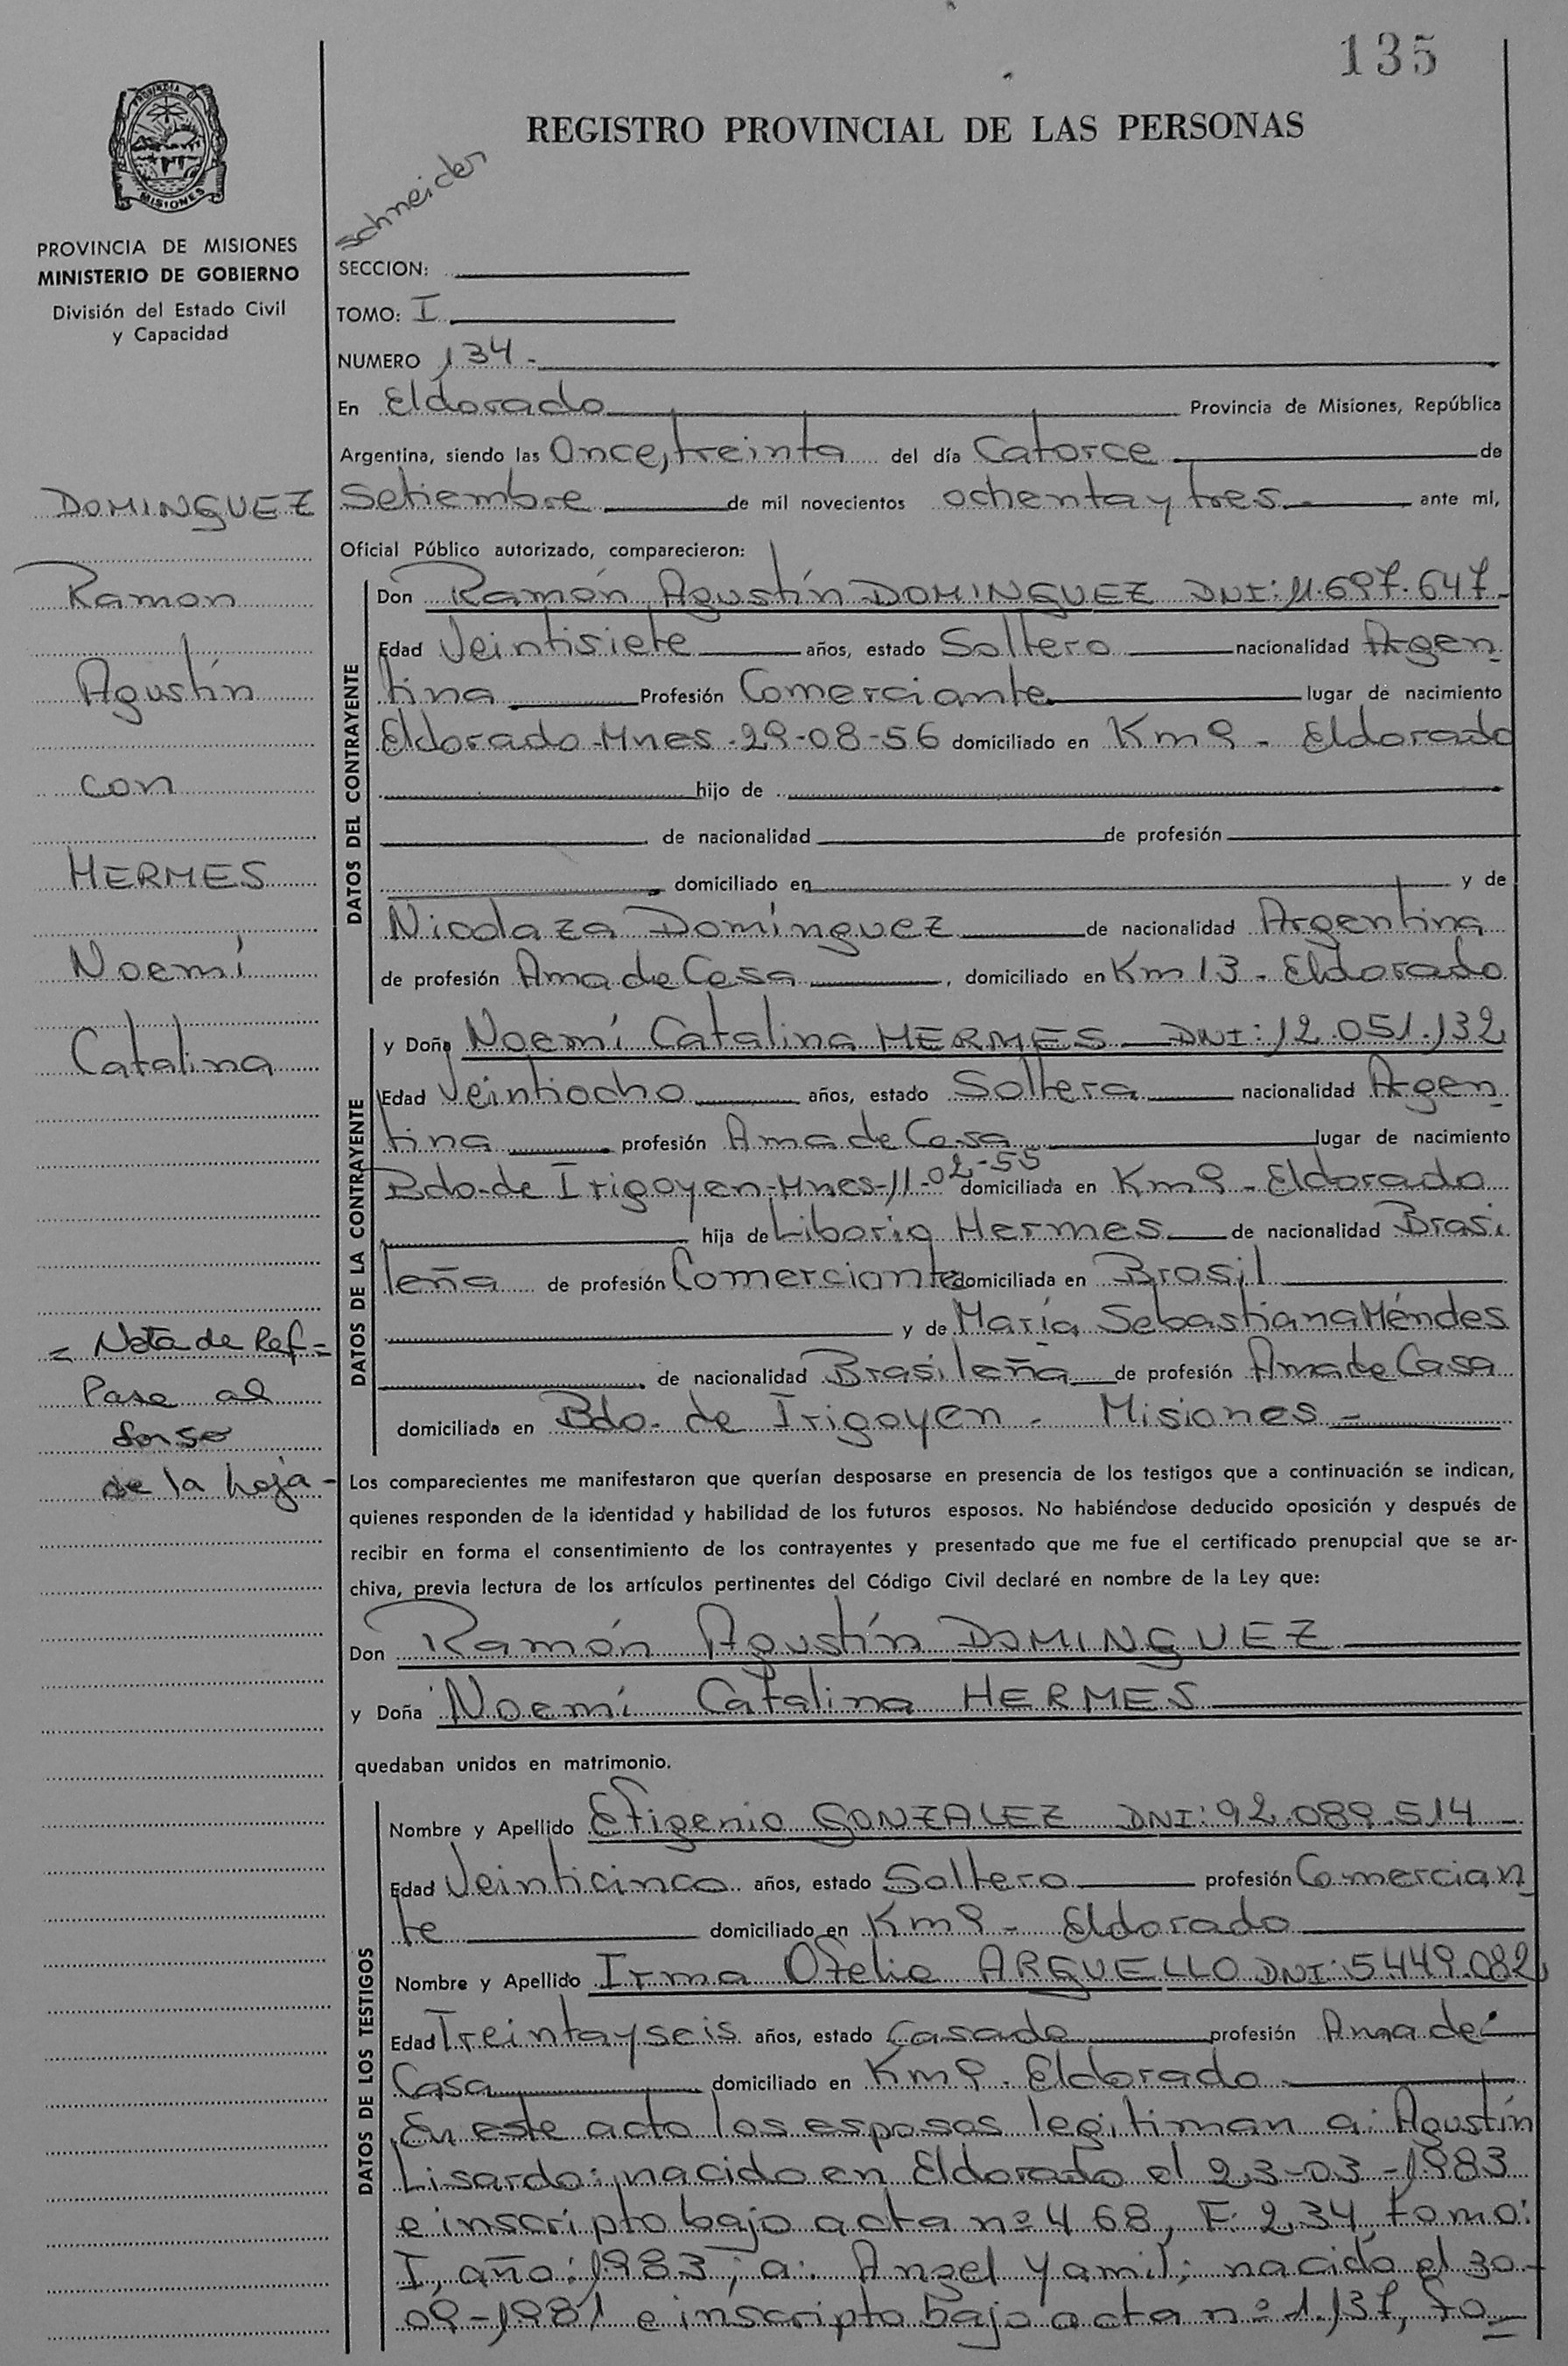 135
REGISTRO PROVINCIAL DE LAS PERSONAS
PROVINCIA DE
MISIONES
PROVINCIA DE MISIONES
MINISTERIO DE GOBIERNO
División del Estado Civil
y Capacidad
Schneider
SECCION:
TOMO: I
NUMERO 134.-
En Eldorado Provincia de Misiones, República
Argentina, siendo las Once, treinta del día Catorce de
Setiembre de mil novecientos ochenta y tres.- ante mí,
Oficial Público autorizado, comparecieron:
DOMINGUEZ
Ramon
Agustín
con
HERMES
Noemí
Catalina
= Nota de Ref =
Pase al
dorso
de la hoja -
DATOS DEL CONTRAYENTE
Don Ramón Agustín DOMINGUEZ DNI: 11.697.647-
Edad Veintisiete años, estado Soltero nacionalidad Argen
tina Profesión Comerciante lugar de nacimiento
Eldorado-Mnes-29-08-56 domiciliado en Km 9 - Eldorado
hijo de
de nacionalidad de profesión
domiciliado en y de
Nicolaza Domínguez de nacionalidad Argentina
de profesión Ama de Casa, domiciliado en Km 13 - Eldorado
DATOS DE LA CONTRAYENTE
y Doña Noemí Catalina HERMES DNI: 12.051.132
Edad Veintiocho años, estado Soltera nacionalidad Argen
tina profesión Ama de Casa lugar de nacimiento
Bdo-de Irigoyen-Mnes-11-02-55 domiciliada en Km 9 - Eldorado
hija de Liborio Hermes de nacionalidad Brasi
leña de profesión Comerciante domiciliada en Brasil
y de María Sebastiana Méndes
de nacionalidad Brasileña de profesión Ama de Casa
domiciliada en Bdo. de Irigoyen - Misiones -
Los comparecientes me manifestaron que querían desposarse en presencia de los testigos que a continuación se indican,
quienes responden de la identidad y habilidad de los futuros esposos. No habiéndose deducido oposición y después de
recibir en forma el consentimiento de los contrayentes y presentado que me fue el certificado prenupcial que se ar-
chiva, previa lectura de los artículos pertinentes del Código Civil declaré en nombre de la Ley que:
Don Ramón Agustín DOMINGUEZ
y Doña Noemí Catalina HERMES
quedaban unidos en matrimonio.
DATOS DE LOS TESTIGOS
Nombre y Apellido Efigenio GONZALEZ DNI: 92.089.514 -
Edad Veinticinco años, estado Soltero profesión Comercian
te domiciliado en Km 9 - Eldorado
Nombre y Apellido Irma Ofelia ARGUELLO DNI: 5.449.082
Edad Treinta y seis años, estado Casada profesión Ama de
Casa domiciliado en Km 9 - Eldorado
En este acto los esposos legitiman a: Agustín
Lisardo: nacido en Eldorado el 23-03-1983
e inscripto bajo acta nº 468, F: 234, tomo:
I, año: 1983; a: Angel Yamil; nacido el 30-
09-1981 e inscripto bajo acta nº 1.137, fo